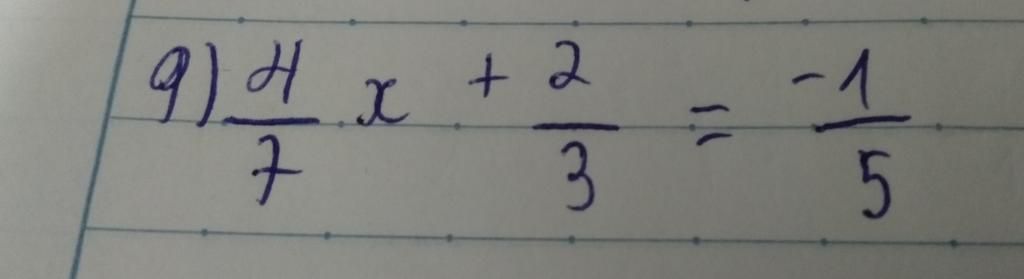 9) 4/7 x + 2/3 = -1/5